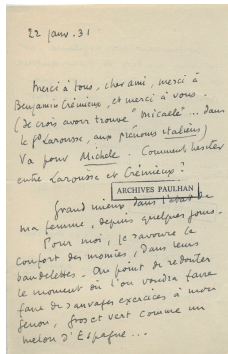 22 janv. 31
Merci à tous, cher ami, merci à
Benjamin Crémieux, et merci à vous.
(Je crois avoir trouvé "Micaele"... dans
le gd Larousse, aux prénoms italiens)
Va pour Michele. Comment hésiter
entre Larousse et Crémieux ?
ARCHIVES PAULHAN
Grand mieux dans l'état de
ma femme, depuis quelques jours.
Pour moi, je savoure le
confort des momies, dans leurs
bandelettes. Au point de redouter
le moment où l'on voudra faire
faire de sauvages exercices à mon
genou, gros et vert comme un
melon d'Espagne...